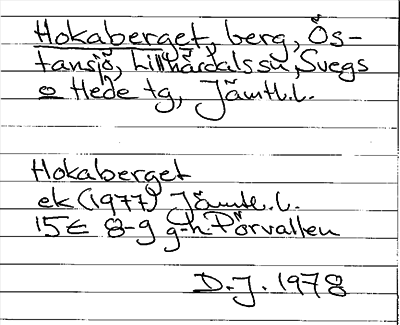 Hokaberget, berg, Ös-
tansjö, Lillhärdals sn, Svegs
o Hede tg, Jämtl.l.
Hokaberget
ek (1977) Jämtl. l.
15E 8-9 g-h Pörvallen
D.J. 1978